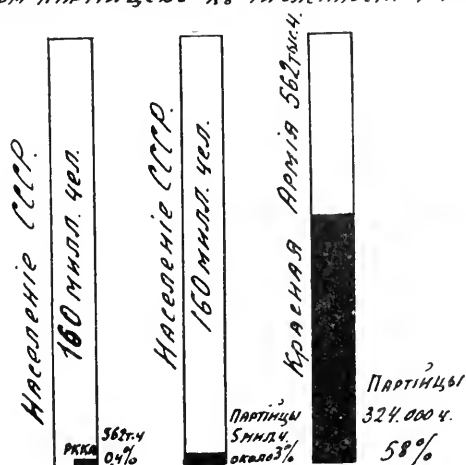 партійцевъ къ численности
Населеніе СССР.
160 милл. чел.
РККА
562т.ч
0.4%
Населеніе СССР.
160 милл. чел.
Партійцы
5 милл.ч.
около 3%
Красная Армія 562 тыс. ч.
Партійцы
324.000 ч.
58%